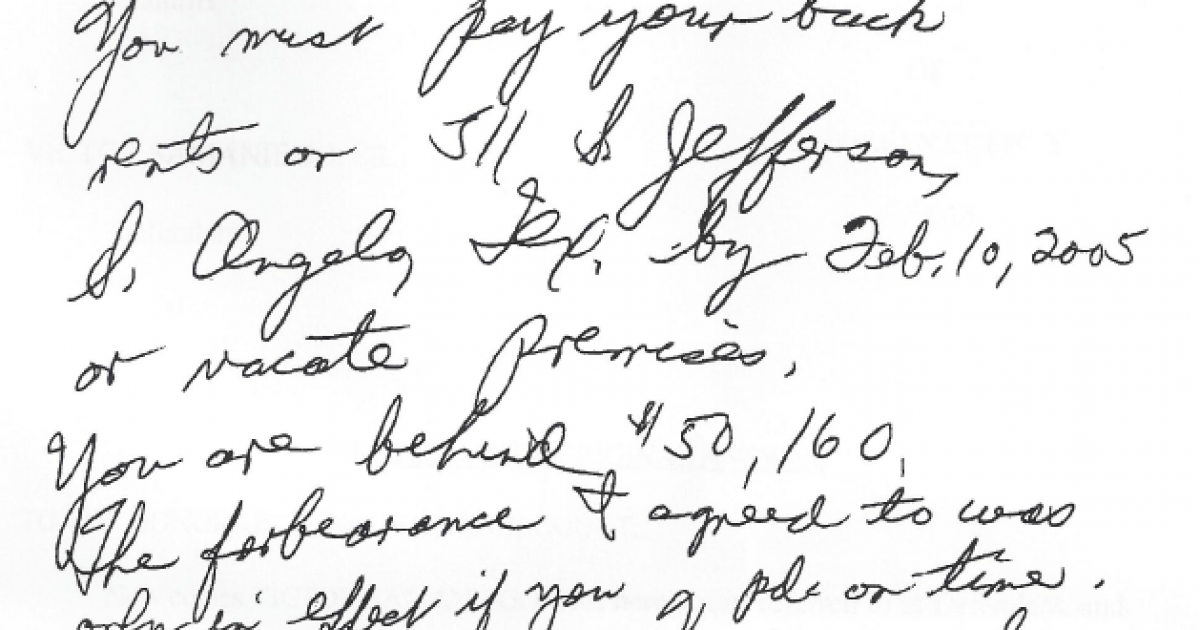 You must pay your back
rents or 511 S. Jefferson,
S. Angelo, Tex. by Feb. 10, 2005
or vacate premises.
You are behind $50,160.
The forbearance I agreed to was
only in effect if you pd. on time.